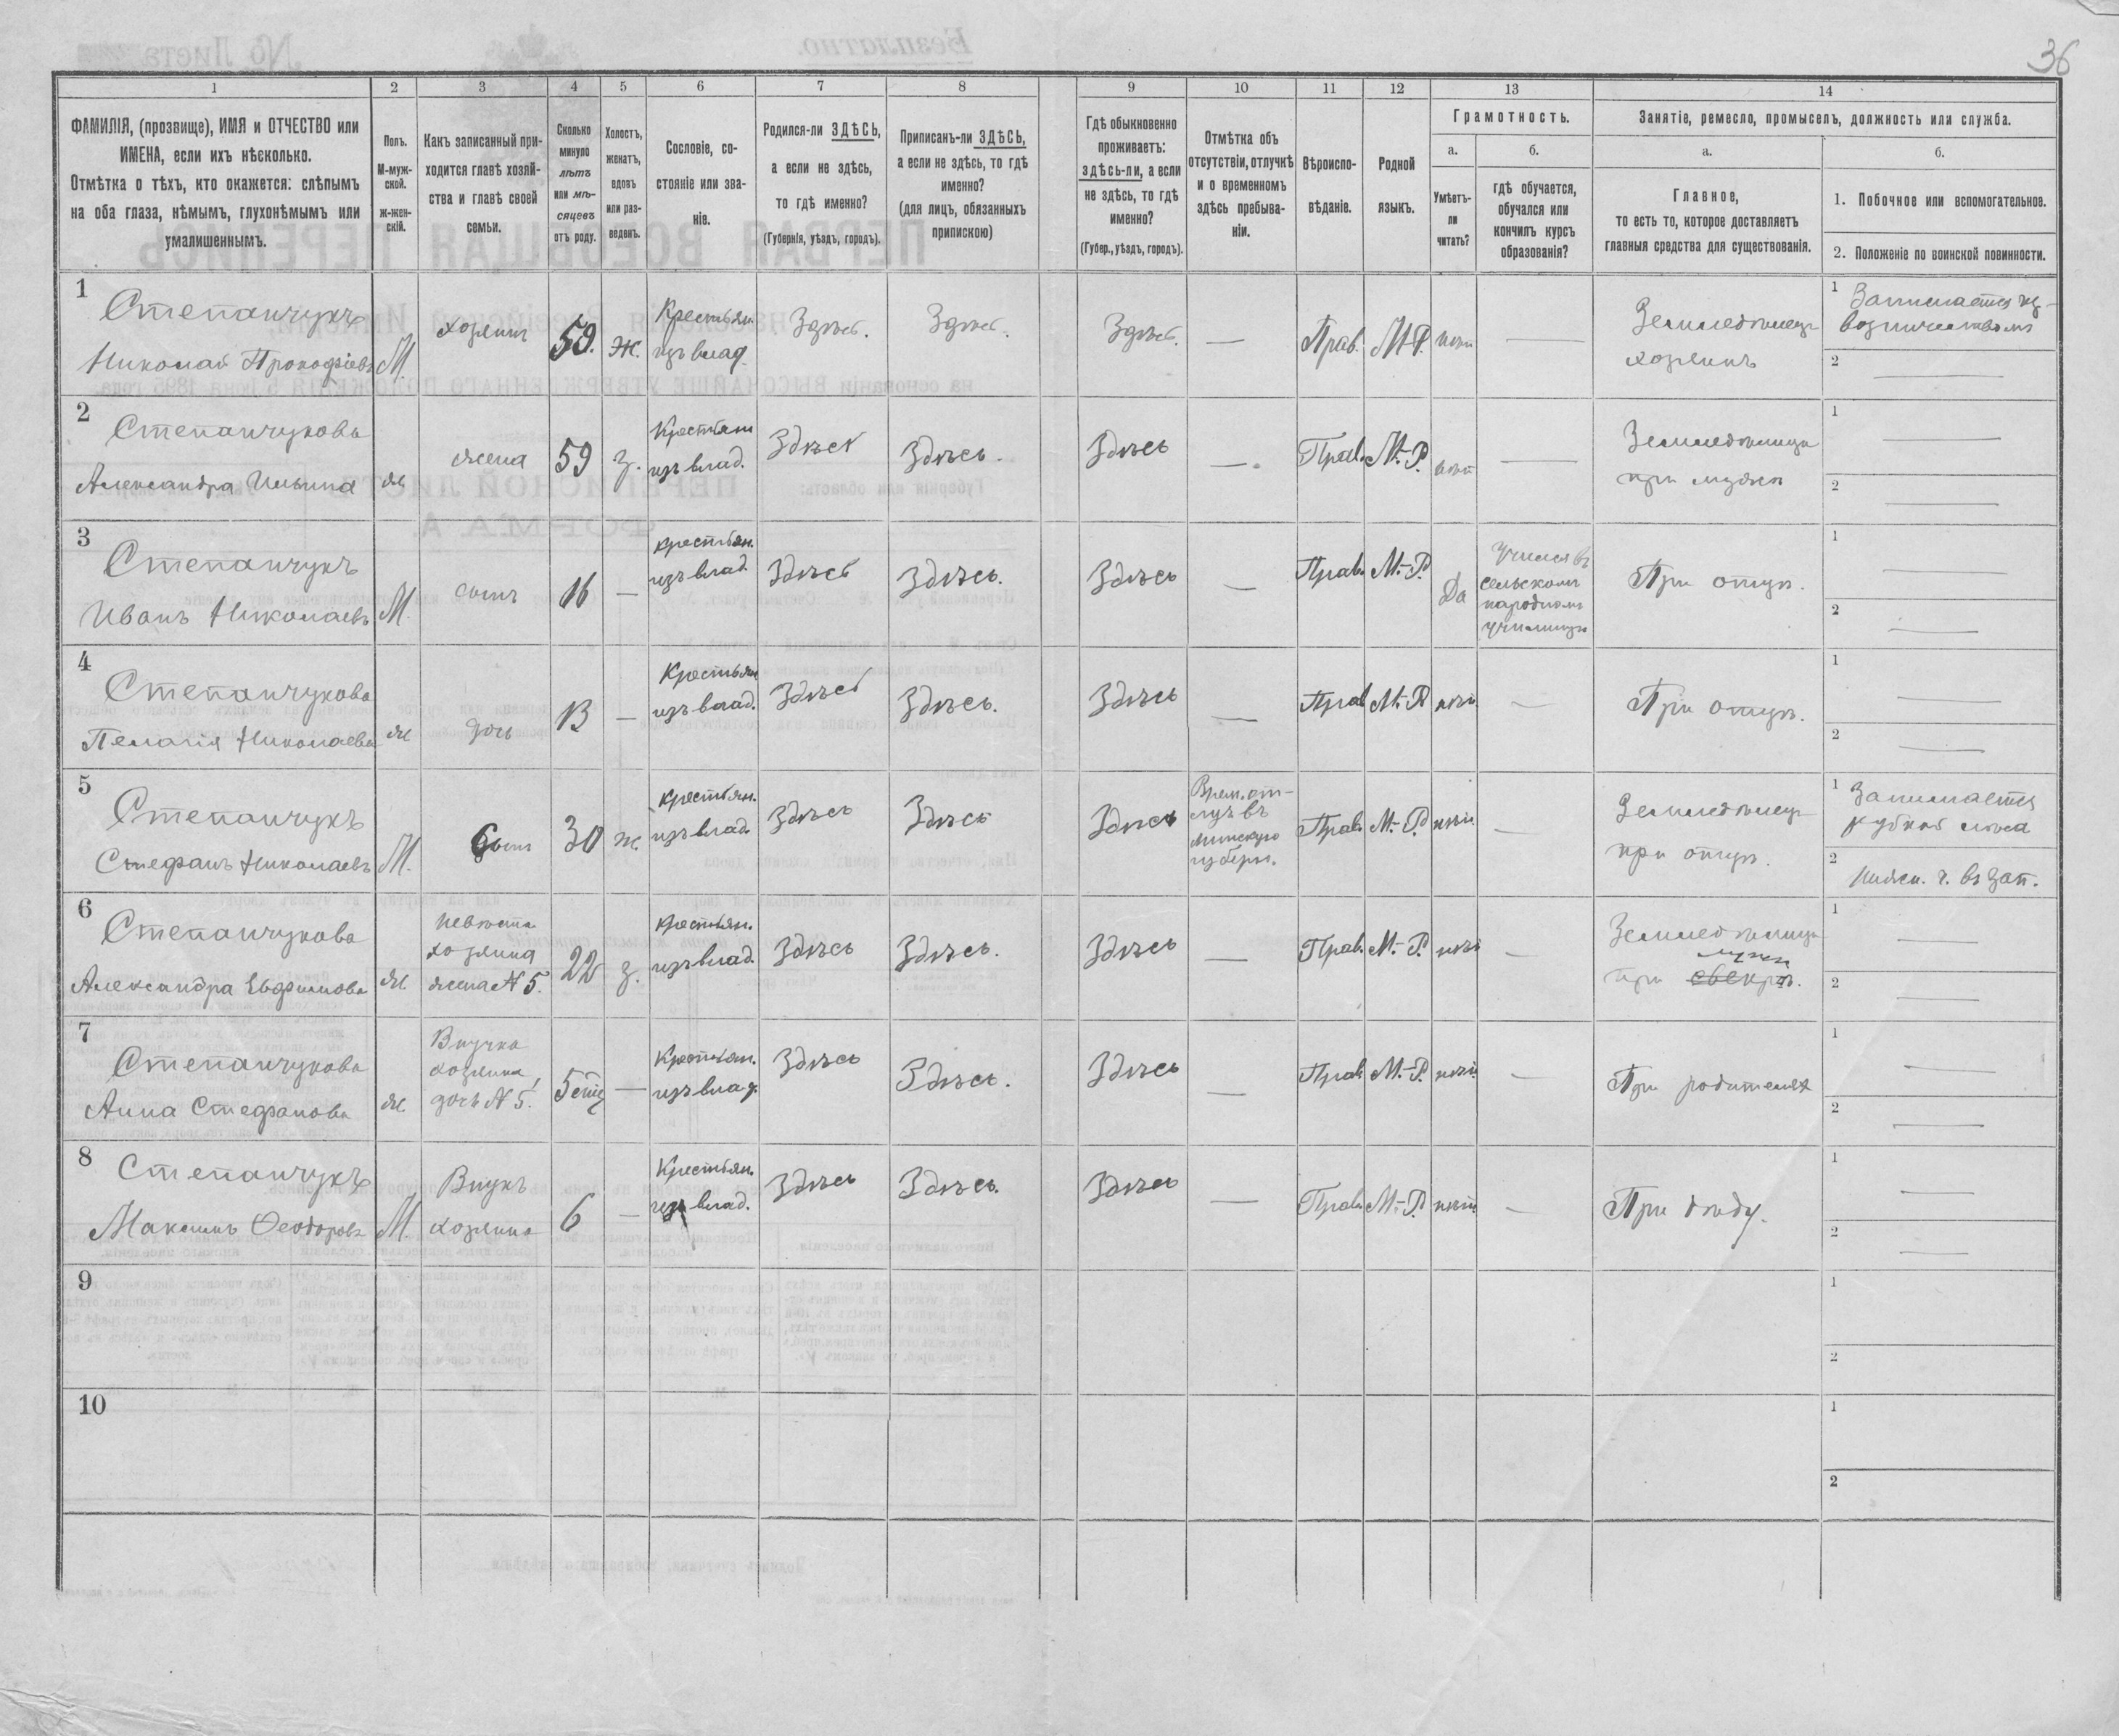 36
1
2
3
4
5
6
7
8
9
10
11
12
13
14
ФАМИЛІЯ, (прозвище), ИМЯ и ОТЧЕСТВО или
ИМЕНА, если ихъ нѣсколько.
Отмѣтка о тѣхъ, кто окажется: слѣпымъ
на оба глаза, нѣмымъ, глухонѣмымъ или
умалишеннымъ.
Полъ.
М-муж-
ской.
ж-жен-
скій.
Какъ записанный при-
ходится главѣ хозяй-
ства и главѣ своей
семьи.
Сколько
минуло
лѣтъ
или мѣ-
сяцевъ
отъ роду.
Холостъ,
женатъ,
вдовъ
или раз-
веденъ.
Сословіе, со-
стояніе или зва-
ніе.
Родился-ли ЗДѢСЬ,
а если не здѣсь,
то гдѣ именно?
(Губернія, уѣздъ, городъ).
Приписанъ-ли ЗДѢСЬ,
а если не здѣсь, то гдѣ
именно?
(для лицъ, обязанныхъ
припискою)
Гдѣ обыкновенно
проживаетъ:
здѣсь-ли, а если
не здѣсь, то гдѣ
именно?
(Губер., уѣздъ, городъ).
Отмѣтка объ
отсутствіи, отлучкѣ
и о временномъ
здѣсь пребыва-
ніи.
Вѣроиспо-
вѣданіе.
Родной
языкъ.
Грамотность.
а.
Умѣетъ-
ли
читать?
б.
гдѣ обучается,
обучался или
кончилъ курсъ
образованія?
Занятіе, ремесло, промыселъ, должность или служба.
а.
Главное,
то есть то, которое доставляетъ
главныя средства для существованія.
б.
1. Побочное или вспомогательное.
2. Положеніе по воинской повинности.
1
Степанчукъ
Николай Прокофіевъ
М.
хозяинъ
59.
Ж.
Крестьян.
изъ влад.
Здѣсь.
Здѣсь.
Здѣсь.
—
Прав.
М-Р.
нѣтъ
—
Земледѣлецъ
хозяинъ
1 Занимается из-
возничествомъ
2 —
2
Степанчукова
Александра Ильина
ж
жена
59
з.
Крестьян
изъ влад.
Здѣсь
Здѣсь.
Здѣсь
—.
Прав.
М.-Р.
нѣтъ
—
Земледѣлица
при мужѣ
1 —
2 —
3
Степанчукъ
Иванъ Николаевъ
М.
сынъ
16
—
крестьян.
изъ влад.
Здѣсь
Здѣсь.
Здѣсь
—
Прав.
М.-Р.
Да
Учился въ
сельскомъ
народномъ
училищѣ
При отцѣ.
1 —
2 —
4
Степанчукова
Пелагія Николаева
ж
дочь
13
—
Крестьян
изъ влад.
Здѣсь
Здѣсь.
Здѣсь
—
Прав
М.-Р
нѣтъ
—
При отцѣ.
1 —
2 —
5
Степанчукъ
Стефанъ Николаевъ
М.
Сынъ
30
ж.
крестьян.
изъ влад.
Здѣсь
Здѣсь
Здѣсь
Врем. от-
луч въ
Минскую
губерн.
Прав.
М.-Р.
нѣтъ
—
Земледѣлецъ
при отцѣ.
1 Занимается
рубкой лѣса
2 Нижн. ч. въ зап.
6
Степанчукова
Александра Евфимова
ж.
невѣста
хозяина
жена N 5.
22
з.
крестьян.
изъ влад.
Здѣсь
Здѣсь.
Здѣсь
—
Прав.
М.-Р.
нѣтъ
—
Земледѣлица
мужѣ
при свекрѣ.
1 —
2 —
7
Степанчукова
Анна Стефанова
ж.
Внучка
хозяина,
дочь N 5.
—
Крестьян.
изъ влад.
Здѣсь
Здѣсь.
Здѣсь
—
Прав.
М.-Р.
нѣтъ.
—
При родителях
1 —
2 —
8
Степанчукъ
Максимъ Ѳеодоровъ
М.
Внукъ
хозяина
6
—
Крестьян.
изъ влад.
Здѣсь
Здѣсь.
Здѣсь
—
Прав.
М.-Р.
нѣтъ
—
При дѣду.
1 —
2 —
9
1
2
10
1
2